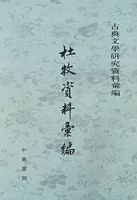 古典文學研究資料彙編
杜牧資料彙編
中華書局